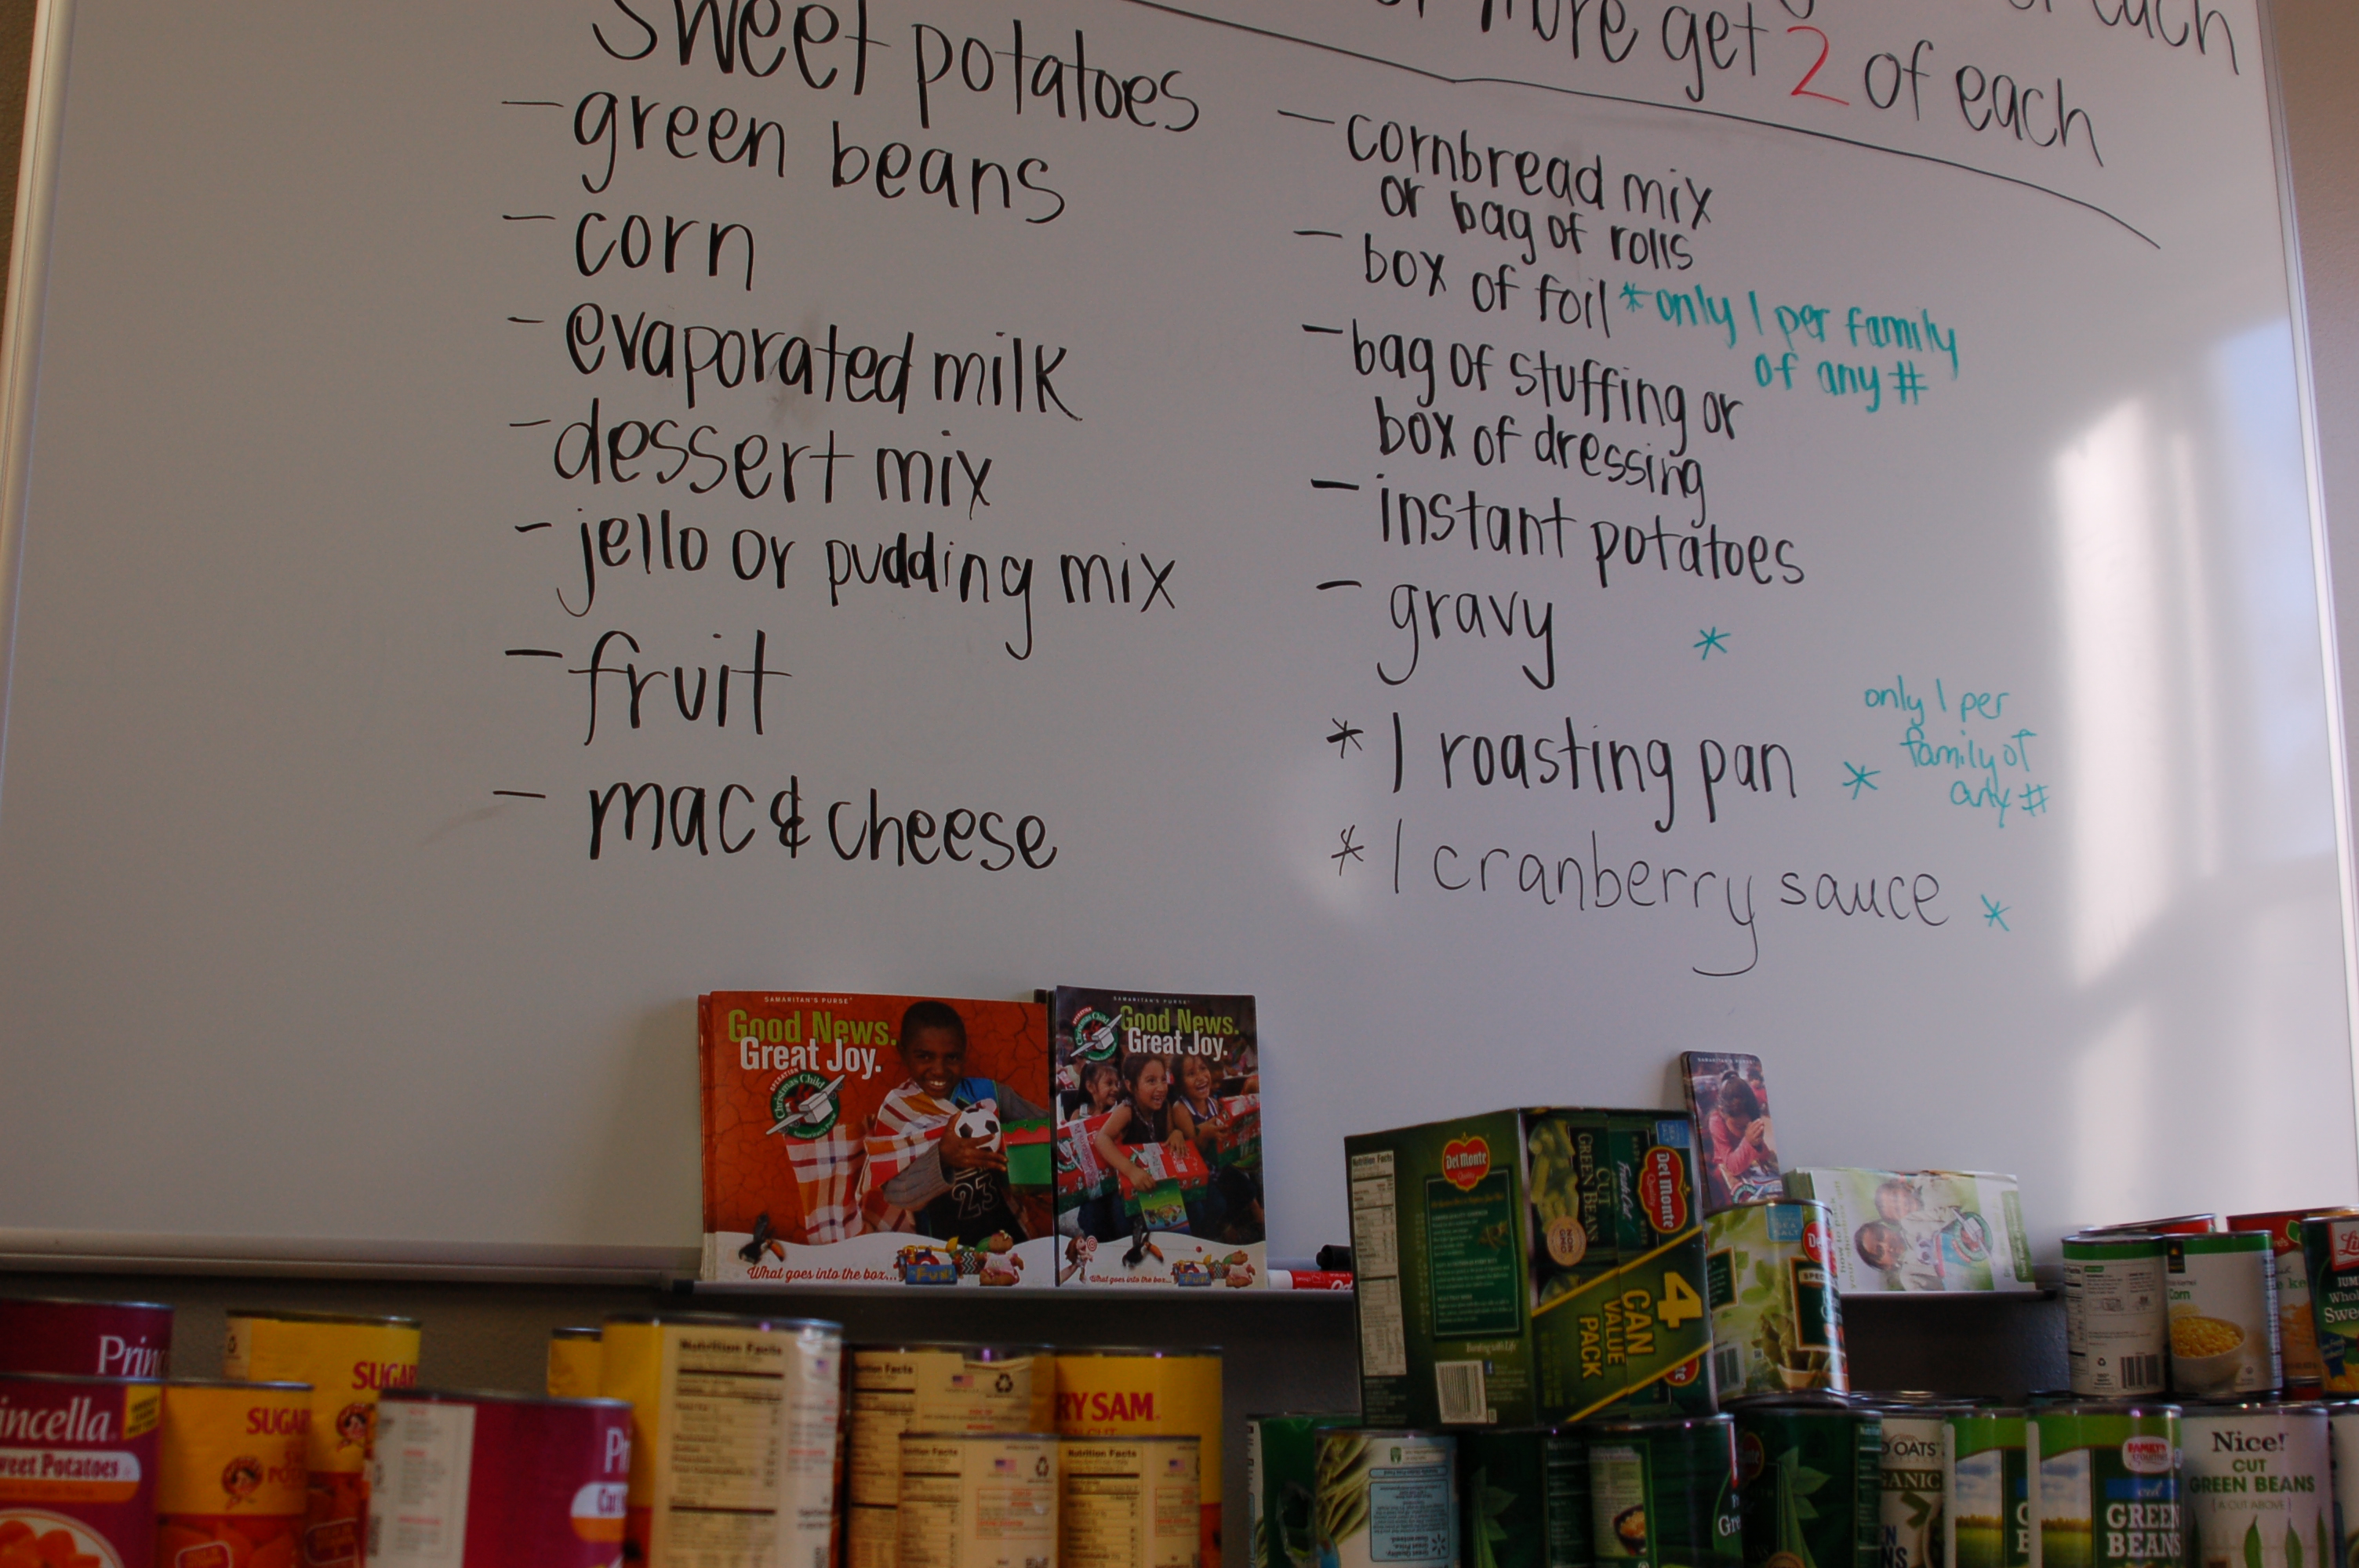 each
more get 2 of each
sweet potatoes
- green beans
- corn
- evaporated milk
- dessert mix
- jello or pudding mix
- fruit
- mac & cheese
- cornbread mix
or bag of rolls
- box of foil * only 1 per family
of any #
- bag of stuffing or
box of dressing
- instant potatoes
- gravy *
* 1 roasting pan *
only 1 per
family of
any #
* 1 cranberry sauce *
SAMARITAN'S PURSE
Good News.
Great Joy.
OPERATION
Christmas Child
What goes into the box...
Fun
23
SAMARITAN'S PURSE
Good News.
Great Joy.
Christmas Child
What goes into the box...
SAMARITAN'S PURSE
Nutrition Facts
Del Monte
Quality
CUT
GREEN BEANS
NON
GMO
Fresh Cut
Del Monte
Quality
4
CAN
VALUE
PACK
SEA
SALT
Corn
Whole
Swe
Prin
SUGAR
incella
weet Potatoes
SUGAR
Nutrition Facts
RY SAM
Nutrition Facts
Nutrition Facts
OATS
GANIC
cut
GREEN
BEANS
Nice!
CUT
GREEN BEANS
A CUT ABOVE